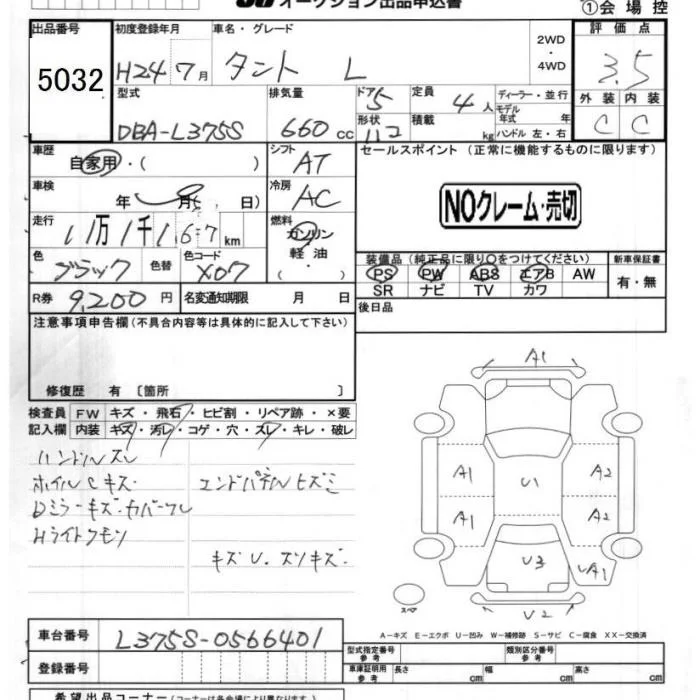 オークション出品申込書
①会場控
出品番号 5032
初度登録年月 H24年7月
車名・グレード タント L
2WD・4WD
評価点 3.5
外装 C 内装 C
型式 DBA-L375S
排気量 660cc
ドア 5 形状
定員 4人 積載 kg
ディーラー・並行
モデル年式 年
ハンドル 左・右
車歴 自家用・( )
シフト AT
セールスポイント (正常に機能するものに限ります)
NOクレーム・売切
車検 年 月( 日)
冷房 AC
走行 11万1千167km
燃料 ガソリン 軽油
色 ブラック 色替 色コード X07
装備品(純正品に限り○をつけてください) 新車保証書
PS PW ABS エアB AW 有・無
SR ナビ TV カワ
R券 9,200円 名変通知期限 月 日
後日品
注意事項申告欄(不具合内容等は具体的に記入して下さい)
修復歴 有 [箇所 ]
検査員 FW キズ・飛石・ヒビ割・リペア跡・×要
記入欄 内装 キズ・汚レ・コゲ・穴・スレ・キレ・破レ
ハンドルスレ
ホイルCキズ エンドパネルヒズミ
Dミラーキズ・カバーワレ
Hライトクモリ
キズU.スリキズ.
A1
A1 U1 A2
A1 A2
U3 UA1
スペア
U2
A－キズ E－エクボ U－凹み W－補修跡 S－サビ C－腐食 XX－交換済
車台番号 L375S-0566401
型式指定番号 参考 類別区分番号 参考
登録番号
車庫証明用 参考 長さ cm 幅 cm 高さ cm
希望出品コーナー(コーナーは各会場により異なります)